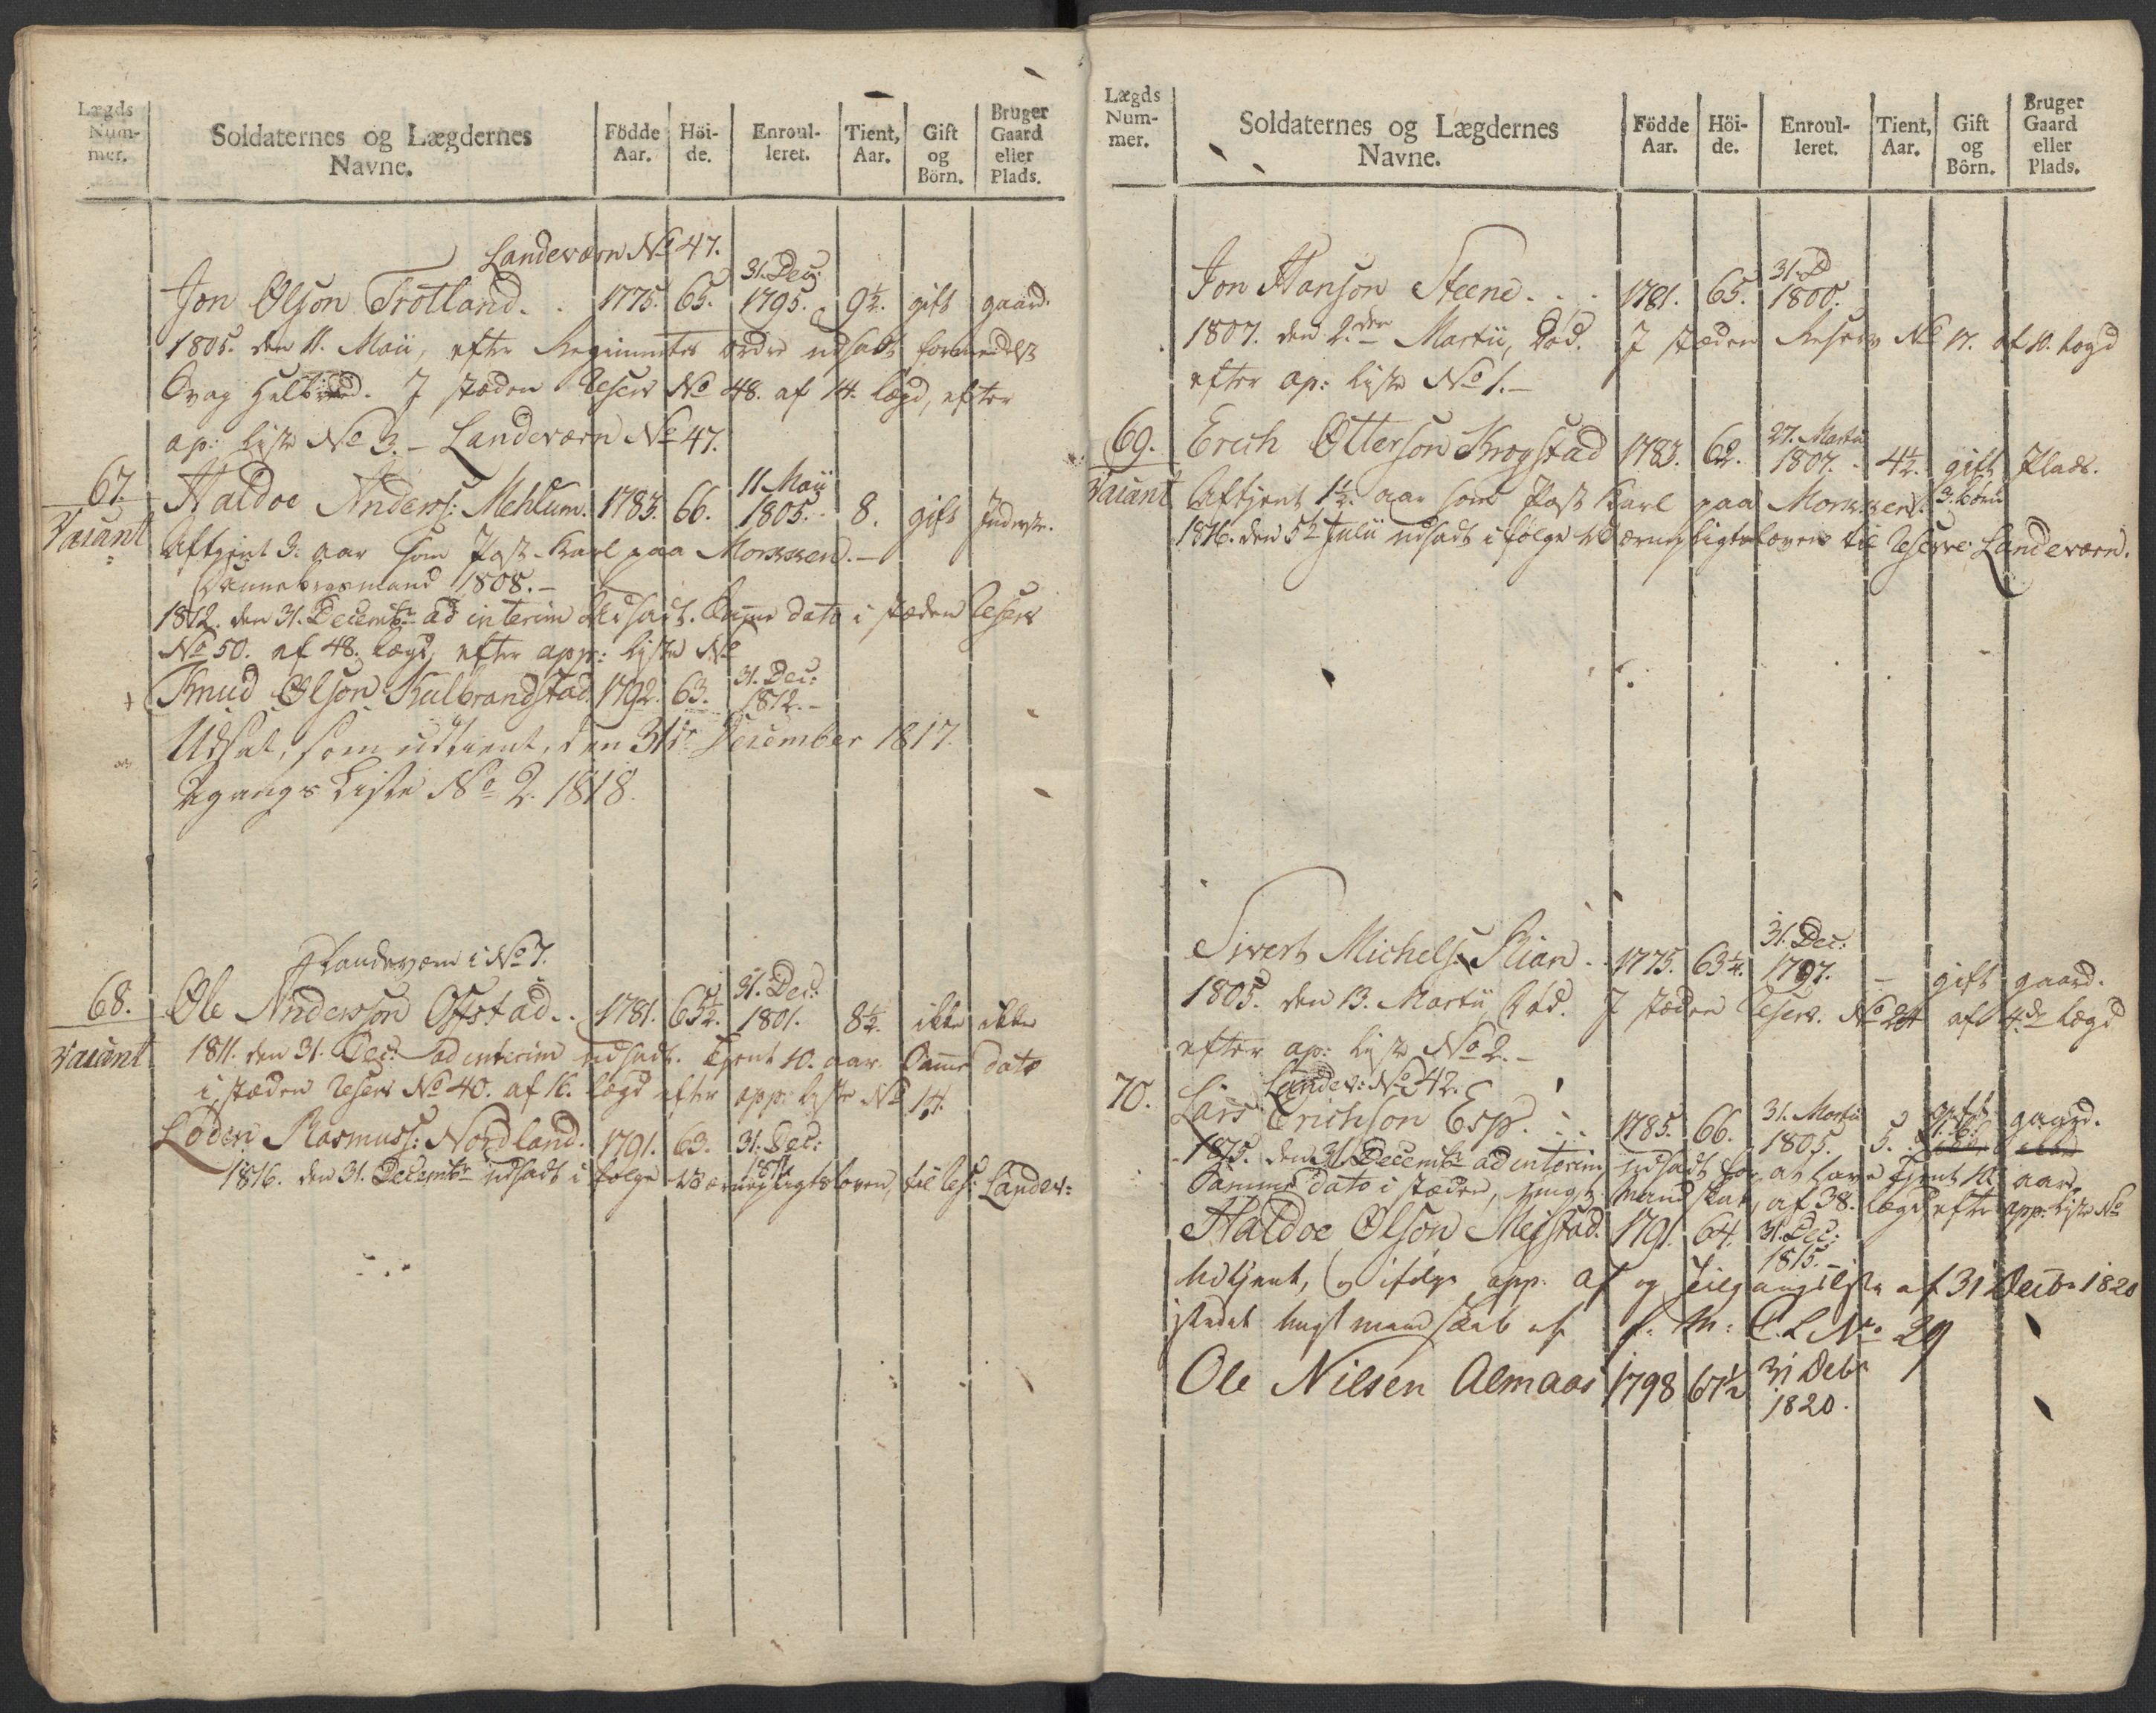 Lægds Num- mer.
Soldaternes og Lægdernes Navne.
Födde Aar.
Höi- de.
Enroul- leret.
Tient, Aar.
Gift og Börn.
Bruger Gaard eller Plads.
Landeværn No 47.
Jon Olson Trötland. . 1775. 65. 31. Dec: 1795. 9½. gift gaard.
1805. den 11. Maii, efter Regimentes ordre udsadt formedelst
Svag Helbred. I stæden Reserv No 48. af 14. Lægd, efter
ap: Liste No 3. – Landeværn No 47.
67. Haldoe Anders: Mehlum. 1783. 66. 11 Maii 1805. 8. gift Inderst.
Vacant Aftjent 3. aar som Post-Karl paa Morkken. –
Dannebrogsmand 1808. –
1812. den 31. Decembr ad interim Udsadt. Samme dato i stæden Reserv
No 50. af 48. Lægd, efter app: Liste No
Knud Olson Kulbrandstad. 1792. 63. 31. Dec: 1812. –
Udsat, som udtient, den 31te December 1817.
Agangs Liste No 2. 1818.
Landeværn i No 7.
68. Ole Anderson Offstad. . 1781. 65½. 31. Dec: 1801. 8½. ikke ikke
Vacant 1811. den 31. Dec: ad interim udsadt. Tjent 10. aar. Samme dato
i stæden Reserv No 40. af 16. Lægd efter app: Liste No 14.
Loden Rasmuss: Nordland. 1791. 63. 31. Dec: 1811
1816. den 31. Decembr udsadt i følge Værnepligtsloven, til Res: Landev:
Lægds Num- mer.
Soldaternes og Lægdernes Navne.
Födde Aar.
Höi- de.
Enroul- leret.
Tient, Aar.
Gift og Börn.
Bruger Gaard eller Plads.
Jon Hanson Steene. . . 1781. 65. 31. D 1800.
1807. den 2.den Martii, Död. I stæden Reserv No 17. af 10. Lægd
efter ap: Liste No 1. –
69. Erich Otterson Krogstad 1783. 62. 27. Martii 1807. 4½. gift Plads.
Vacant Aftjent 1½. aar som Post Karl paa Morkken. 3. börn
1816. den 5te Julii udsadt i følge Værnepligtsloven til Reserve Landeværn.
Sivert Michels: Rian. . 1775. 63¼. 31. Dec: 1797. – gift gaard.
1805. den 13. Martii, Död. I stæden Reserv. No 24 af 4.de Lægd
efter ap: Liste No 2. –
Landev: No 42.
70. Lars Erichson Esp. . . 1785. 66. 31. Martii 1805. 5. gift gaard.
1815. den 31. Decembr ad interim udsadt for at have tjent 10. aar.
Samme dato i stæden, yngst Mandskab, af 38. Lægd efter app: Liste No
Haldoe Olson Meistad. 1791. 64. 31. Dec: 1815. –
Udtjent, og ifølge app. af og Tilgangsliste af 31 Decbr 1820
istedet Ungt mandskab af C. L No. 29
Ole Nilsen Almaas 1798 67½ 31 Debr 1820.